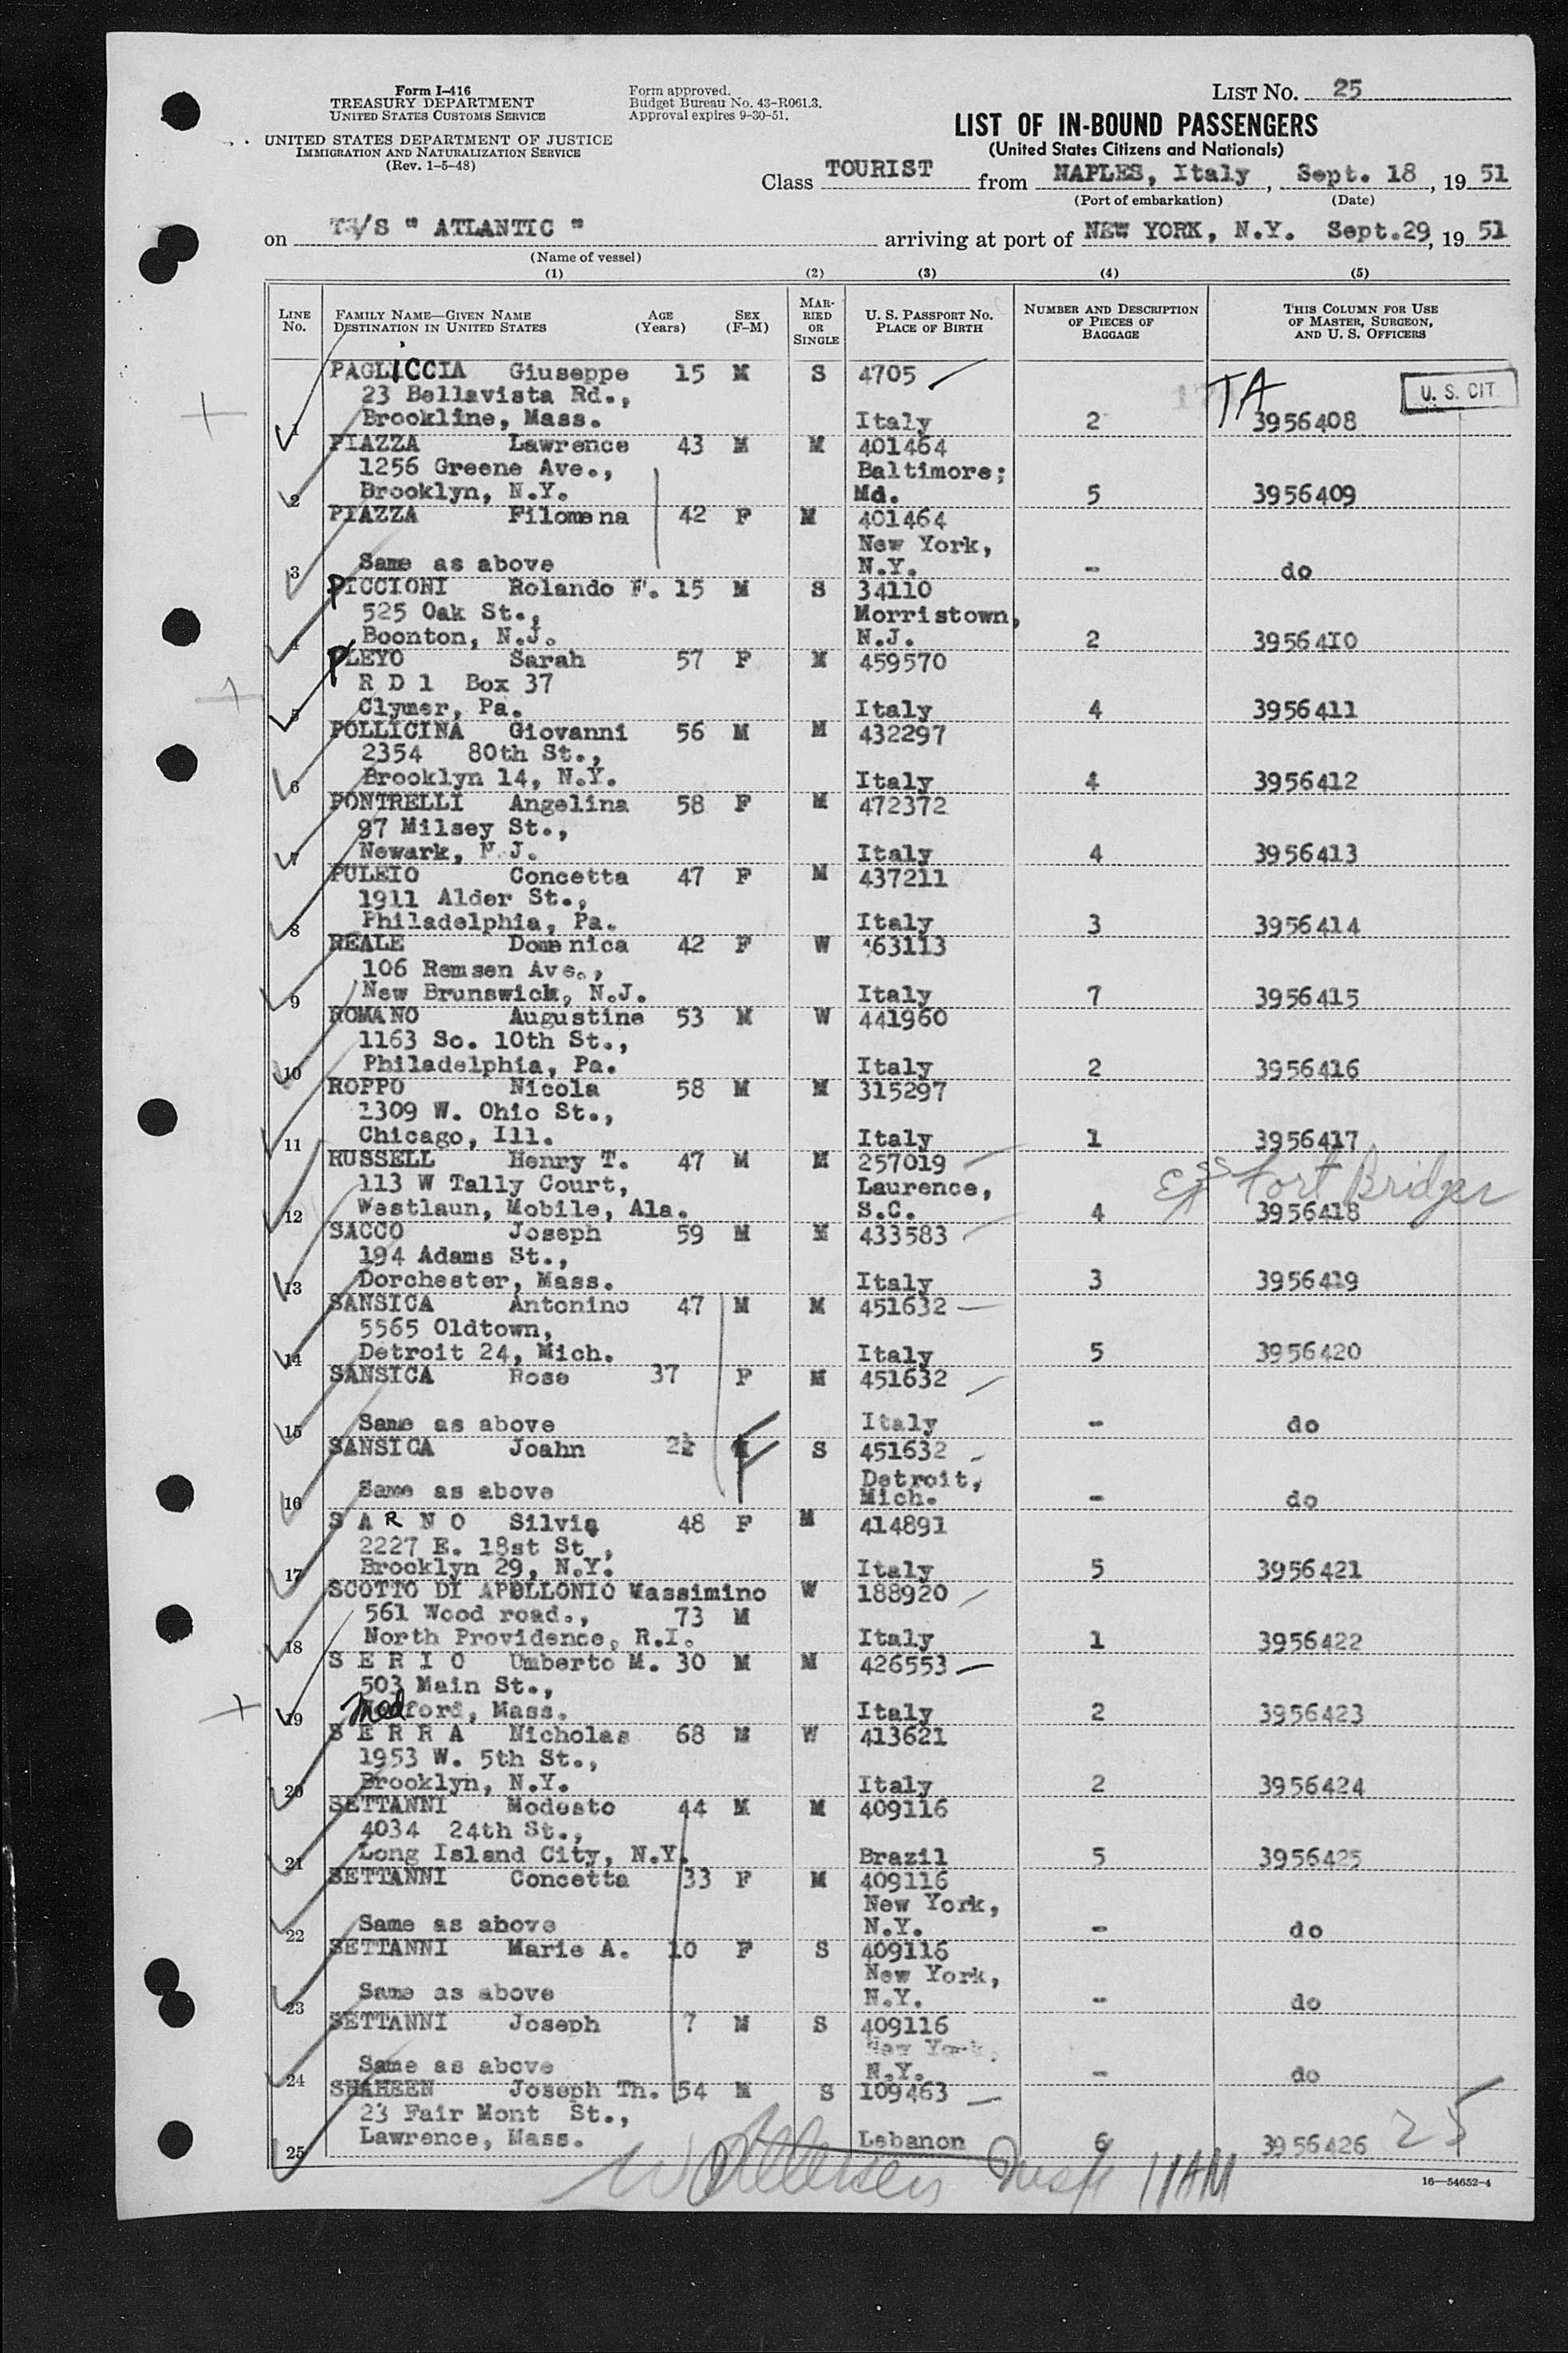 Form I-416
TREASURY DEPARTMENT
UNITED STATES CUSTOMS SERVICE
UNITED STATES DEPARTMENT OF JUSTICE
IMMIGRATION AND NATURALIZATION SERVICE
(Rev. 1-5-48)
Form approved.
Budget Bureau No. 43-R061.3.
Approval expires 9-30-51.
LIST NO. 25
LIST OF IN-BOUND PASSENGERS
(United States Citizens and Nationals)
Class TOURIST from NAPLES, Italy, Sept. 18, 19 51
(Port of embarkation) (Date)
on /S " ATLANTIC " arriving at port of NEW YORK, N.Y. Sept.29, 19 51
(Name of vessel)
(1) (2) (3) (4) (5)
LINE NO. FAMILY NAME—GIVEN NAME DESTINATION IN UNITED STATES AGE (Years) SEX (F-M) MARRIED OR SINGLE U. S. PASSPORT NO. PLACE OF BIRTH NUMBER AND DESCRIPTION OF PIECES OF BAGGAGE THIS COLUMN FOR USE OF MASTER, SURGEON, AND U. S. OFFICERS
PAGLICCIA Giuseppe 15 M S 4705 TA U. S. CIT.
23 Bellavista Rd.,
1 Brookline, Mass. Italy 2 3956408
PIAZZA Lawrence 43 M M 401464
1256 Greene Ave., Baltimore;
2 Brooklyn, N.Y. Md. 5 3956409
PIAZZA Filomena 42 F M 401464
New York,
3 Same as above N.Y. - do
PICCIONI Rolando F. 15 M S 34110
525 Oak St., Morristown,
4 Boonton, N.J. N.J. 2 3956410
PLEYO Sarah 57 F M 459570
R D 1 Box 37
5 Clymer, Pa. Italy 4 3956411
POLLICINA Giovanni 56 M M 432297
2354 80th St.,
6 Brooklyn 14, N.Y. Italy 4 3956412
PONTRELLI Angelina 58 F M 472372
97 Milsey St.,
7 Newark, N.J. Italy 4 3956413
PULEIO Concetta 47 F M 437211
1911 Alder St.,
8 Philadelphia, Pa. Italy 3 3956414
REALE Domenica 42 F W 463113
106 Remsen Ave.,
9 New Brunswick, N.J. Italy 7 3956415
ROMANO Augustine 53 M W 441960
1163 So. 10th St.,
10 Philadelphia, Pa. Italy 2 3956416
ROPPO Nicola 58 M M 315297
1309 W. Ohio St.,
11 Chicago, Ill. Italy 1 3956417
RUSSELL Henry T. 47 M M 257019
113 W Tally Court, Laurence, Fort Bridger
12 Westlaun, Mobile, Ala. S.C. 4 3956418
SACCO Joseph 59 M M 433583
194 Adams St.,
13 Dorchester, Mass. Italy 3 3956419
SANSICA Antonino 47 M M 451632
5565 Oldtown,
14 Detroit 24, Mich. Italy 5 3956420
SANSICA Rose 37 F M 451632
15 Same as above Italy - do
SANSICA Joahn 2½ F S 451632
Detroit,
16 Same as above Mich. - do
S A R N O Silvia 48 F M 414891
2227 E. 18st St.,
17 Brooklyn 29, N.Y. Italy 5 3956421
SCOTTO DI APOLLONIO Massimino W 188920
561 Wood road., 73 M
18 North Providence, R.I. Italy 1 3956422
S E R I O Umberto M. 30 M M 426553
503 Main St.,
19 Medford, Mass. Italy 2 3956423
S E R R A Nicholas 68 M W 413621
1953 W. 5th St.,
20 Brooklyn, N.Y. Italy 2 3956424
SETTANNI Modesto 44 M M 409116
4034 24th St.,
21 Long Island City, N.Y. Brazil 5 3956425
SETTANNI Concetta 33 F M 409116
New York,
22 Same as above N.Y. - do
SETTANNI Marie A. 10 F S 409116
New York,
23 Same as above N.Y. - do
SETTANNI Joseph 7 M S 409116
New York,
24 Same as above N.Y. - do
SHAHEEN Joseph Th. 54 M S 109463
23 Fair Mont St.,
25 Lawrence, Mass. Lebanon 6 3956426 25
Insp 11AM
16—54652-4